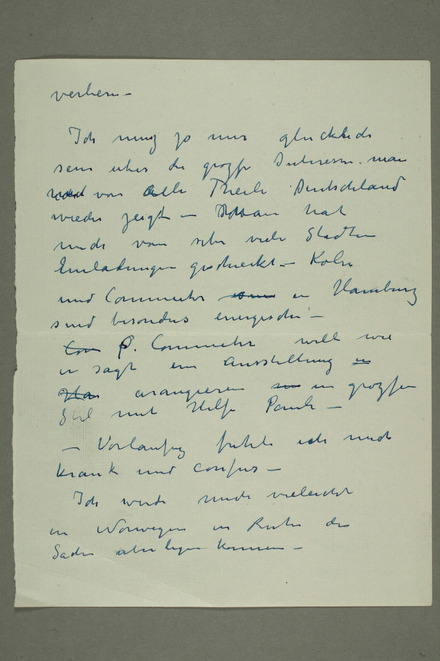 verlieren –
Ich muss ja nur glücklich
sein über die grosse Interesse man
von alle Theile Deutschland
wieder zeigt – Man hat
mich von sehr viele Städten
Einladungen geschickt – Köln
und Commeter in Hamburg
sind besonders energisch –
Commeter will wie
er sagt ein Ausstellung
arangieren in grossen
Stil mit Hilfe Pauli –
– Vorlaüfig fühle ich mich
krank und confus –
Ich werde mich vieleicht
in Norwegen in Ruhe die
Sache überlegen können –